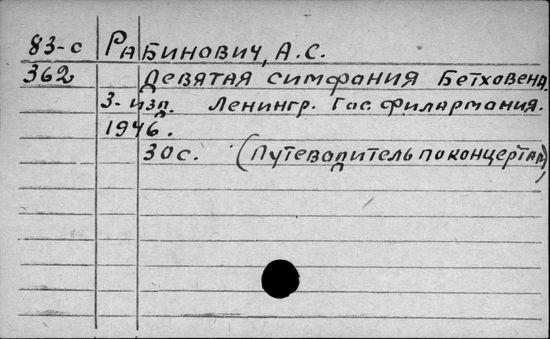 83-с Рабинович, А.С.
362 Девятая симфания Бетховена.
3-изд. Ленингр. Гос. филармания.
1946.
30с. (Путеводитель по концертам)